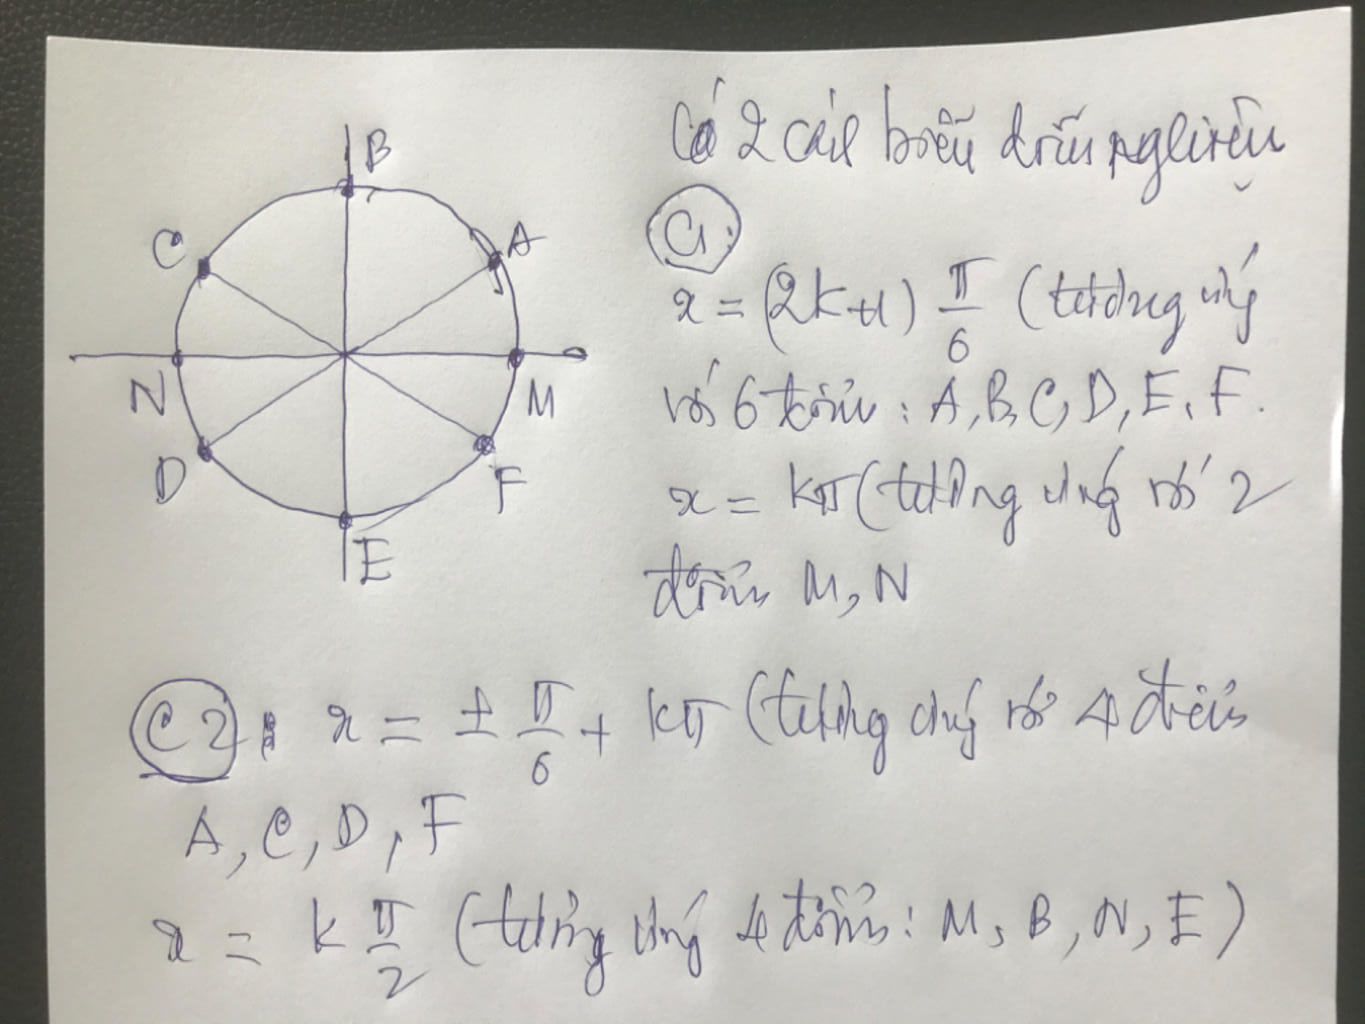 B
C
A
N
M
D
F
E
Có 2 cách biểu diễn nghiệm
C1:
x = (2k+1) π/6 (tương ứng
với 6 điểm: A, B, C, D, E, F.
x = kπ (tương ứng với 2
điểm M, N
C2: x = ± π/6 + kπ (tương ứng với 4 điểm
A, C, D, F
x = k π/2 (tương ứng 4 điểm: M, B, N, E)